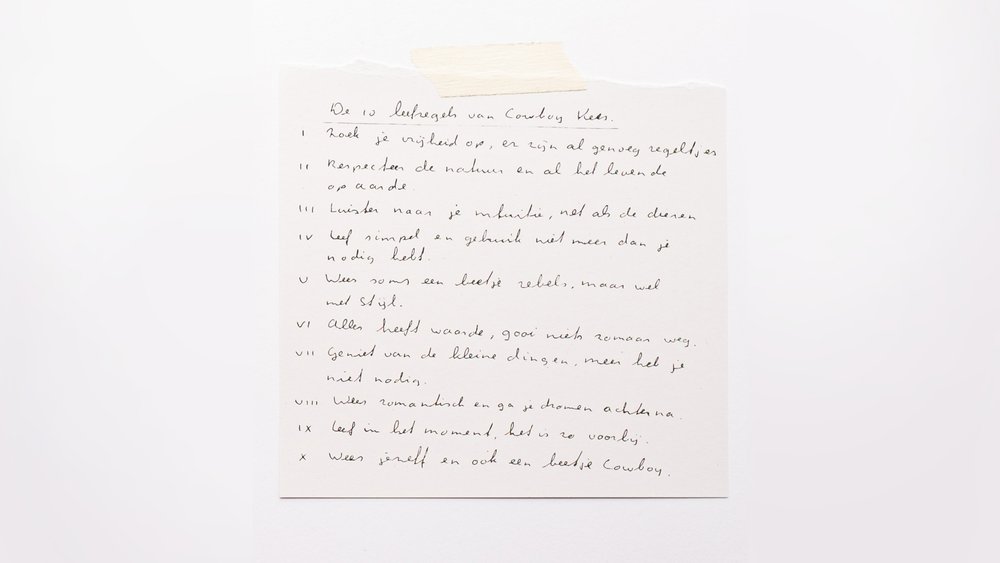 De 10 leefregels van Cowboy Kees.
I Zoek je vrijheid op, er zijn al genoeg regeltjes
II Respecteer de natuur en al het levende
op aarde.
III Luister naar je intuitie, net als de dieren
IV Leef simpel en gebruik niet meer dan je
nodig hebt.
V Wees soms een beetje rebels, maar wel
met Stijl.
VI Alles heeft waarde, gooi niets zomaar weg.
VII Geniet van de kleine dingen, meer heb je
niet nodig.
VIII Wees romantisch en ga je dromen achterna.
IX Leef in het moment, het is zo voorbij.
X Wees jezelf en ook een beetje Cowboy.